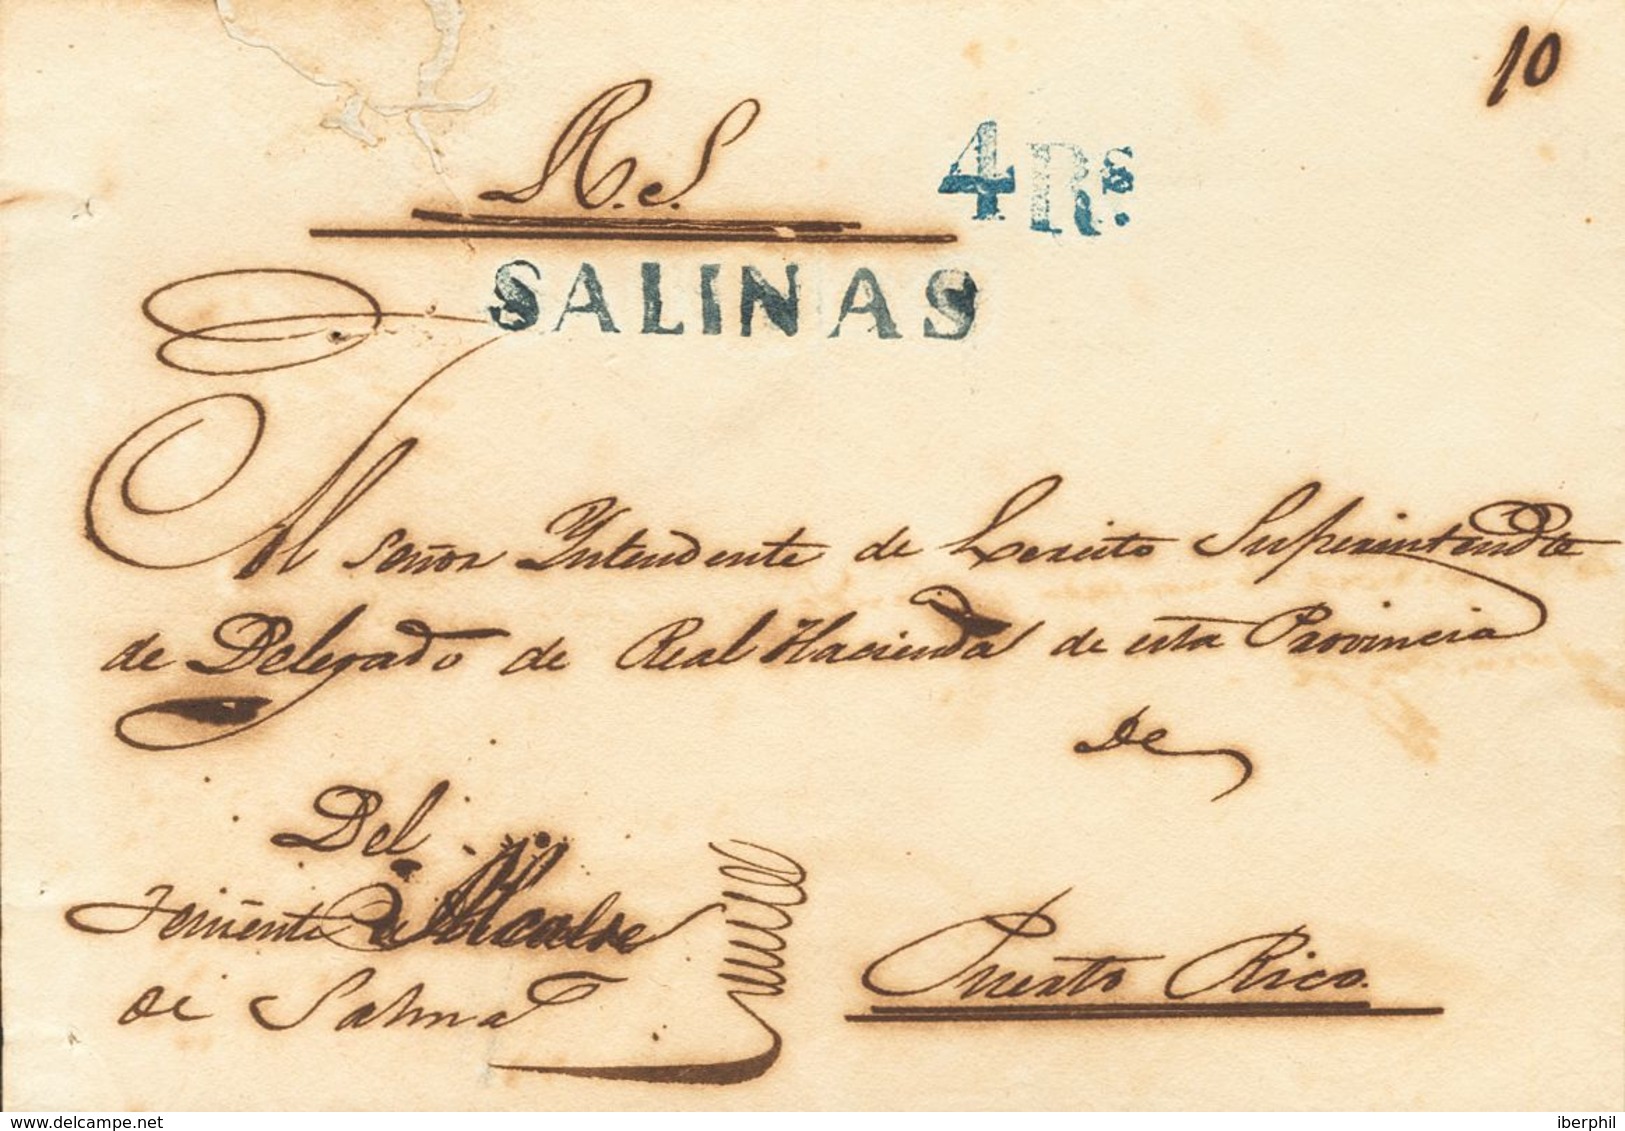 10
R. S.
4 Rs.
SALINAS
Al Señor Yntendente de Exercito Superintendte
de Delegado de Real Hacienda de esta Provincia
de
Del
Teniente de Alcalde
de Salinas
Puerto Rico.
www.delcampe.net
iberphil